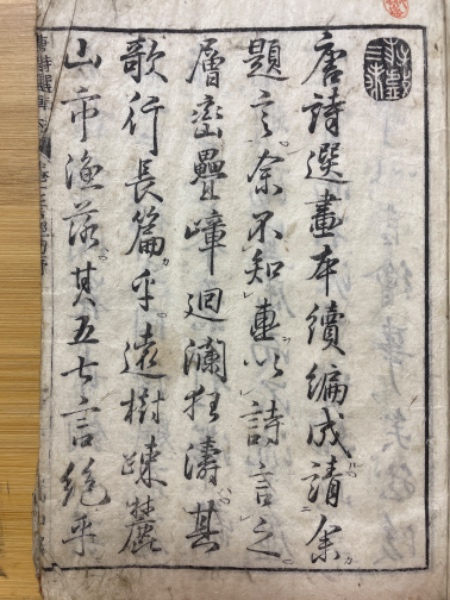 唐詩選畫本續編成請余
題言余不知畫以詩言之
層巒疊嶂迴瀾狂濤其
歌行長篇乎遠樹疎麓
山市漁落其五七言絶乎